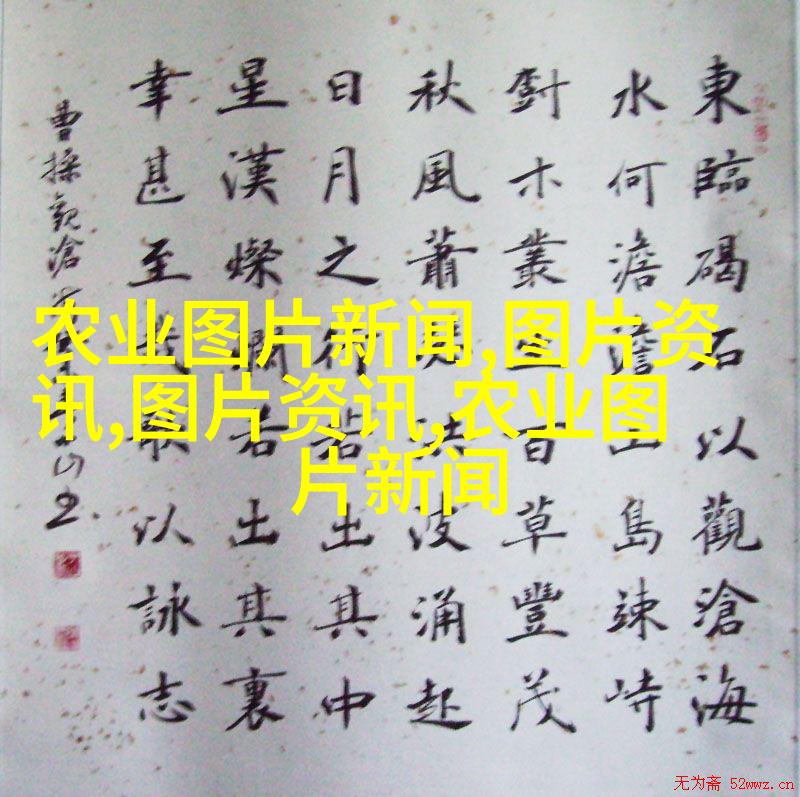 東臨碣石以觀滄海
水何澹澹山島竦峙
樹木叢生百草豐茂
秋風蕭瑟洪波涌起
日月之行若出其中
星漢燦爛若出其裏
幸甚至哉歌以詠志
曹操觀滄海
农业图片新闻,图片资
讯,图片资讯,农业图
片新闻
无为斋 52wwz.cn